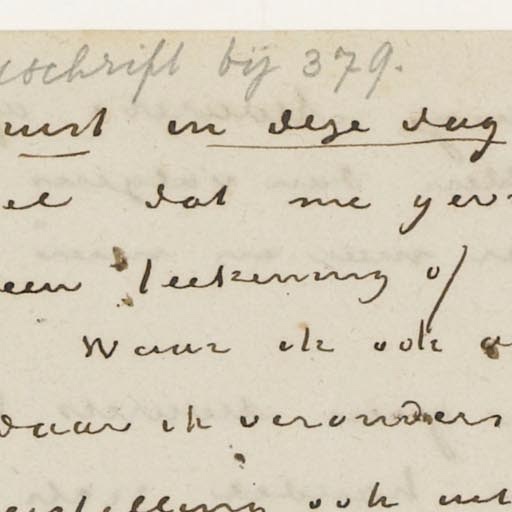 schrift bij 379.
juist in deze dag
dat me gev
een teekening of
Waar ik ook a
daar ik veronders
stelling ook uit